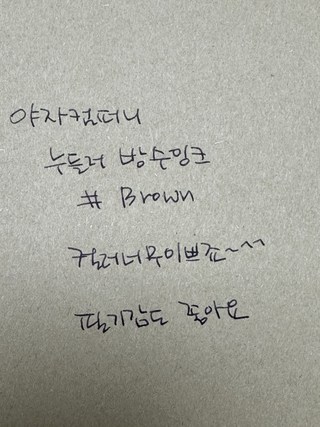 야자컴퍼니
누들러 방수잉크
# Brown
컬러너무이쁘죠~^^
필기감도 좋아요